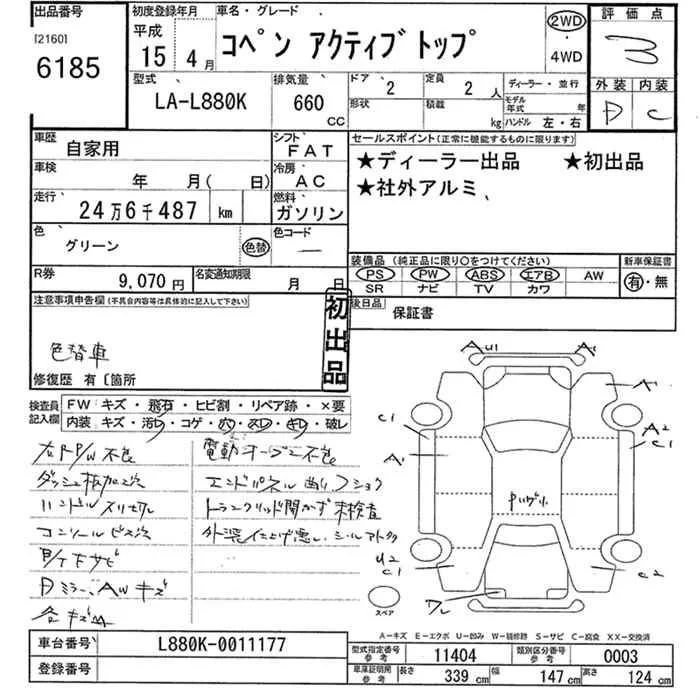 出品番号
[2160]
6185
初度登録年月
平成
15年 4月
車名・グレード
コペン アクティブトップ
2WD
・
4WD
評価点
3
外装 内装
D C
型式
LA-L880K
排気量
660
CC
ドア
2
定員
2 人
形状
積載
kg
ディーラー・並行
モデル年式 年
ハンドル 左・右
車歴
自家用
シフト
FAT
車検
年 月( 日)
冷房
AC
走行
24万6千487 km
燃料
ガソリン
色
グリーン
色替
色コード
—
R券
9,070円
名変通知期限
月 日
セールスポイント(正常に機能するものに限ります)
★ディーラー出品 ★初出品
★社外アルミ、
装備品 (純正品に限り○をつけてください)
PS PW ABS エアB AW
SR ナビ TV カワ
新車保証書
有・無
後日品
保証書
注意事項申告欄(不具合内容等は具体的に記入して下さい)
色替車
修復歴 有〔箇所
初出品
検査員記入欄
FW キズ・飛石・ヒビ割・リペア跡・×要
内装 キズ・汚レ・コゲ・穴・スレ・剥レ・破レ
右P/W不良
電動オープン不良
ダッシュ板加工穴
ハンドルスリ切れ
トランクリッド開かず未検査
コンソールビス穴
下サビ
Dミラー、AWキズ
各キズA
AU1
A1
A1
A2
C1
C1
A1
U2
C1
C2
ワレ
スペア
A−キズ E−エクボ U−凹み W−補修跡 S−サビ C−腐食 XX−交換済
車台番号
L880K-0011177
登録番号
型式指定番号
参考
11404
類別区分番号
参考
0003
車庫証明用
参考
長さ 339 cm 幅 147 cm 高さ 124 cm